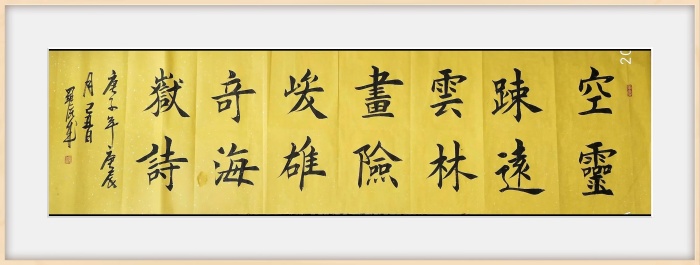 空靈
疎遠
雲林
畫險
峻雄
奇海
嶽詩
庚子年庚辰
月己丑日